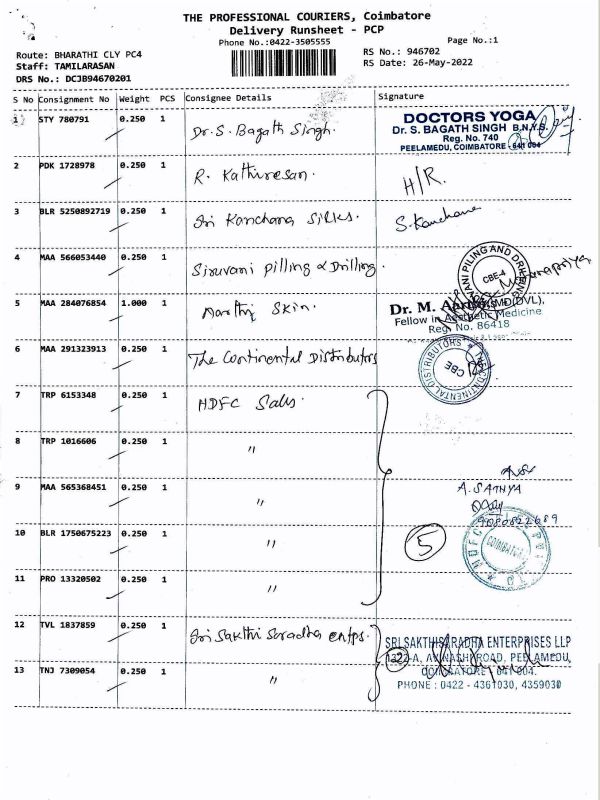 THE PROFESSIONAL COURIERS, Coimbatore
Delivery Runsheet - PCP
Phone No.:0422-3505555
Page No.:1
Route: BHARATHI CLY PC4
RS No.: 946702
Staff: TAMILARASAN
RS Date: 26-May-2022
DRS No.: DCJB94670201
S No Consignment No Weight PCS Consignee Details Signature
1 STY 780791 0.250 1 Dr. S. Bagath Singh.
DOCTORS YOGA
Dr. S. BAGATH SINGH B.N.Y.S.
Reg. No. 740
PEELAMEDU, COIMBATORE - 641 004
2 PDK 1728978 0.250 1 R. Kathiresan. H/R.
3 BLR 5250892719 0.250 1 Sri Kanchana Silks. S. Kanchana
4 MAA 566053440 0.250 1 Siruvani pilling & Drilling.
CBE-4
5 MAA 284076854 1.000 1 Aarthi Skin.
Dr. M. Aarthi, (MD(DVL),
Fellow in Aesthetic Medicine
Reg. No. 86418
6 MAA 291323913 0.250 1 The Continental Distributors
CONTINENTAL DISTRIBUTORS
CBE
7 TRP 6153348 0.250 1 HDFC Sales
8 TRP 1016606 0.250 1 "
9 MAA 565368451 0.250 1 "
A. SATHYA
10 BLR 1750675223 0.250 1 "
5
COIMBATORE
11 PRO 13320502 0.250 1 "
12 TVL 1837859 0.250 1 Sri Sakthi Saradha entps.
SRI SAKTHI SARADHA ENTERPRISES LLP
1322-A, AVINASHI ROAD, PEELAMEDU,
COIMBATORE - 641 004.
PHONE : 0422 - 4361030, 4359030
2
13 TNJ 7309054 0.250 1 "